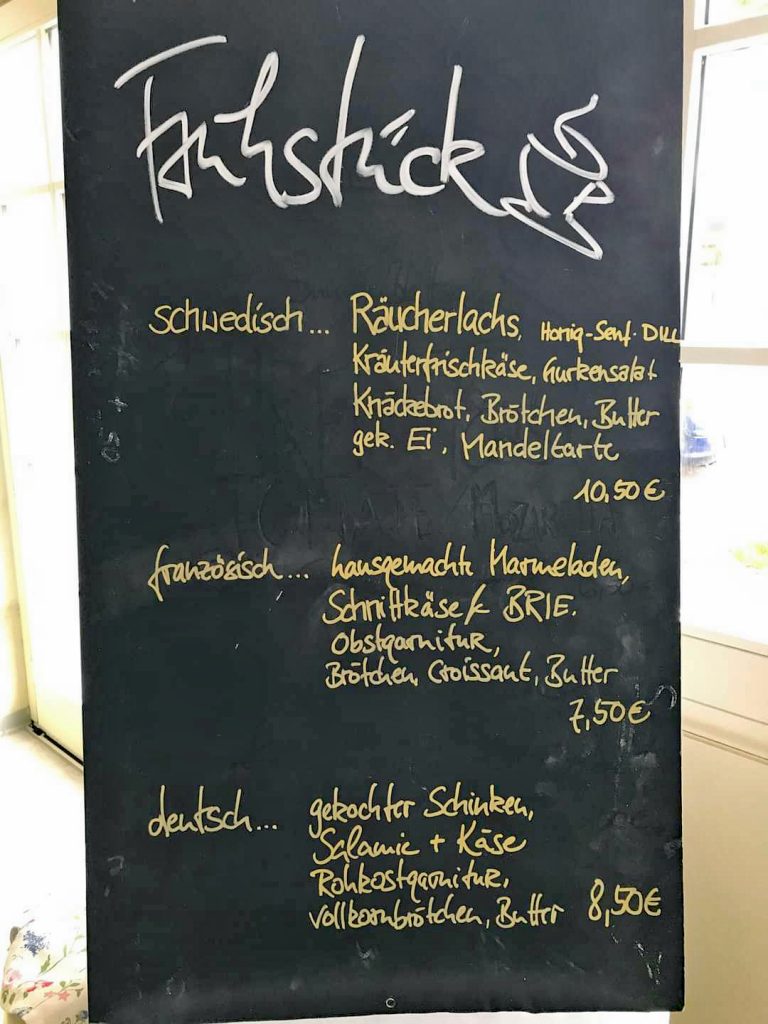 Frühstück
schwedisch... Räucherlachs, Honig-Senf-Dill
Kräuterfrischkäse, Gurkensalat
Knäckebrot, Brötchen, Butter
gek. Ei, Mandeltarte
10,50 €
französisch... hausgemachte Marmeladen,
Schnittkäse / BRIE.
Obstgarnitur,
Brötchen, Croissant, Butter
7,50 €
deutsch... gekochter Schinken,
Salamie + Käse
Rohkostgarnitur,
Vollkornbrötchen, Butter 8,50 €